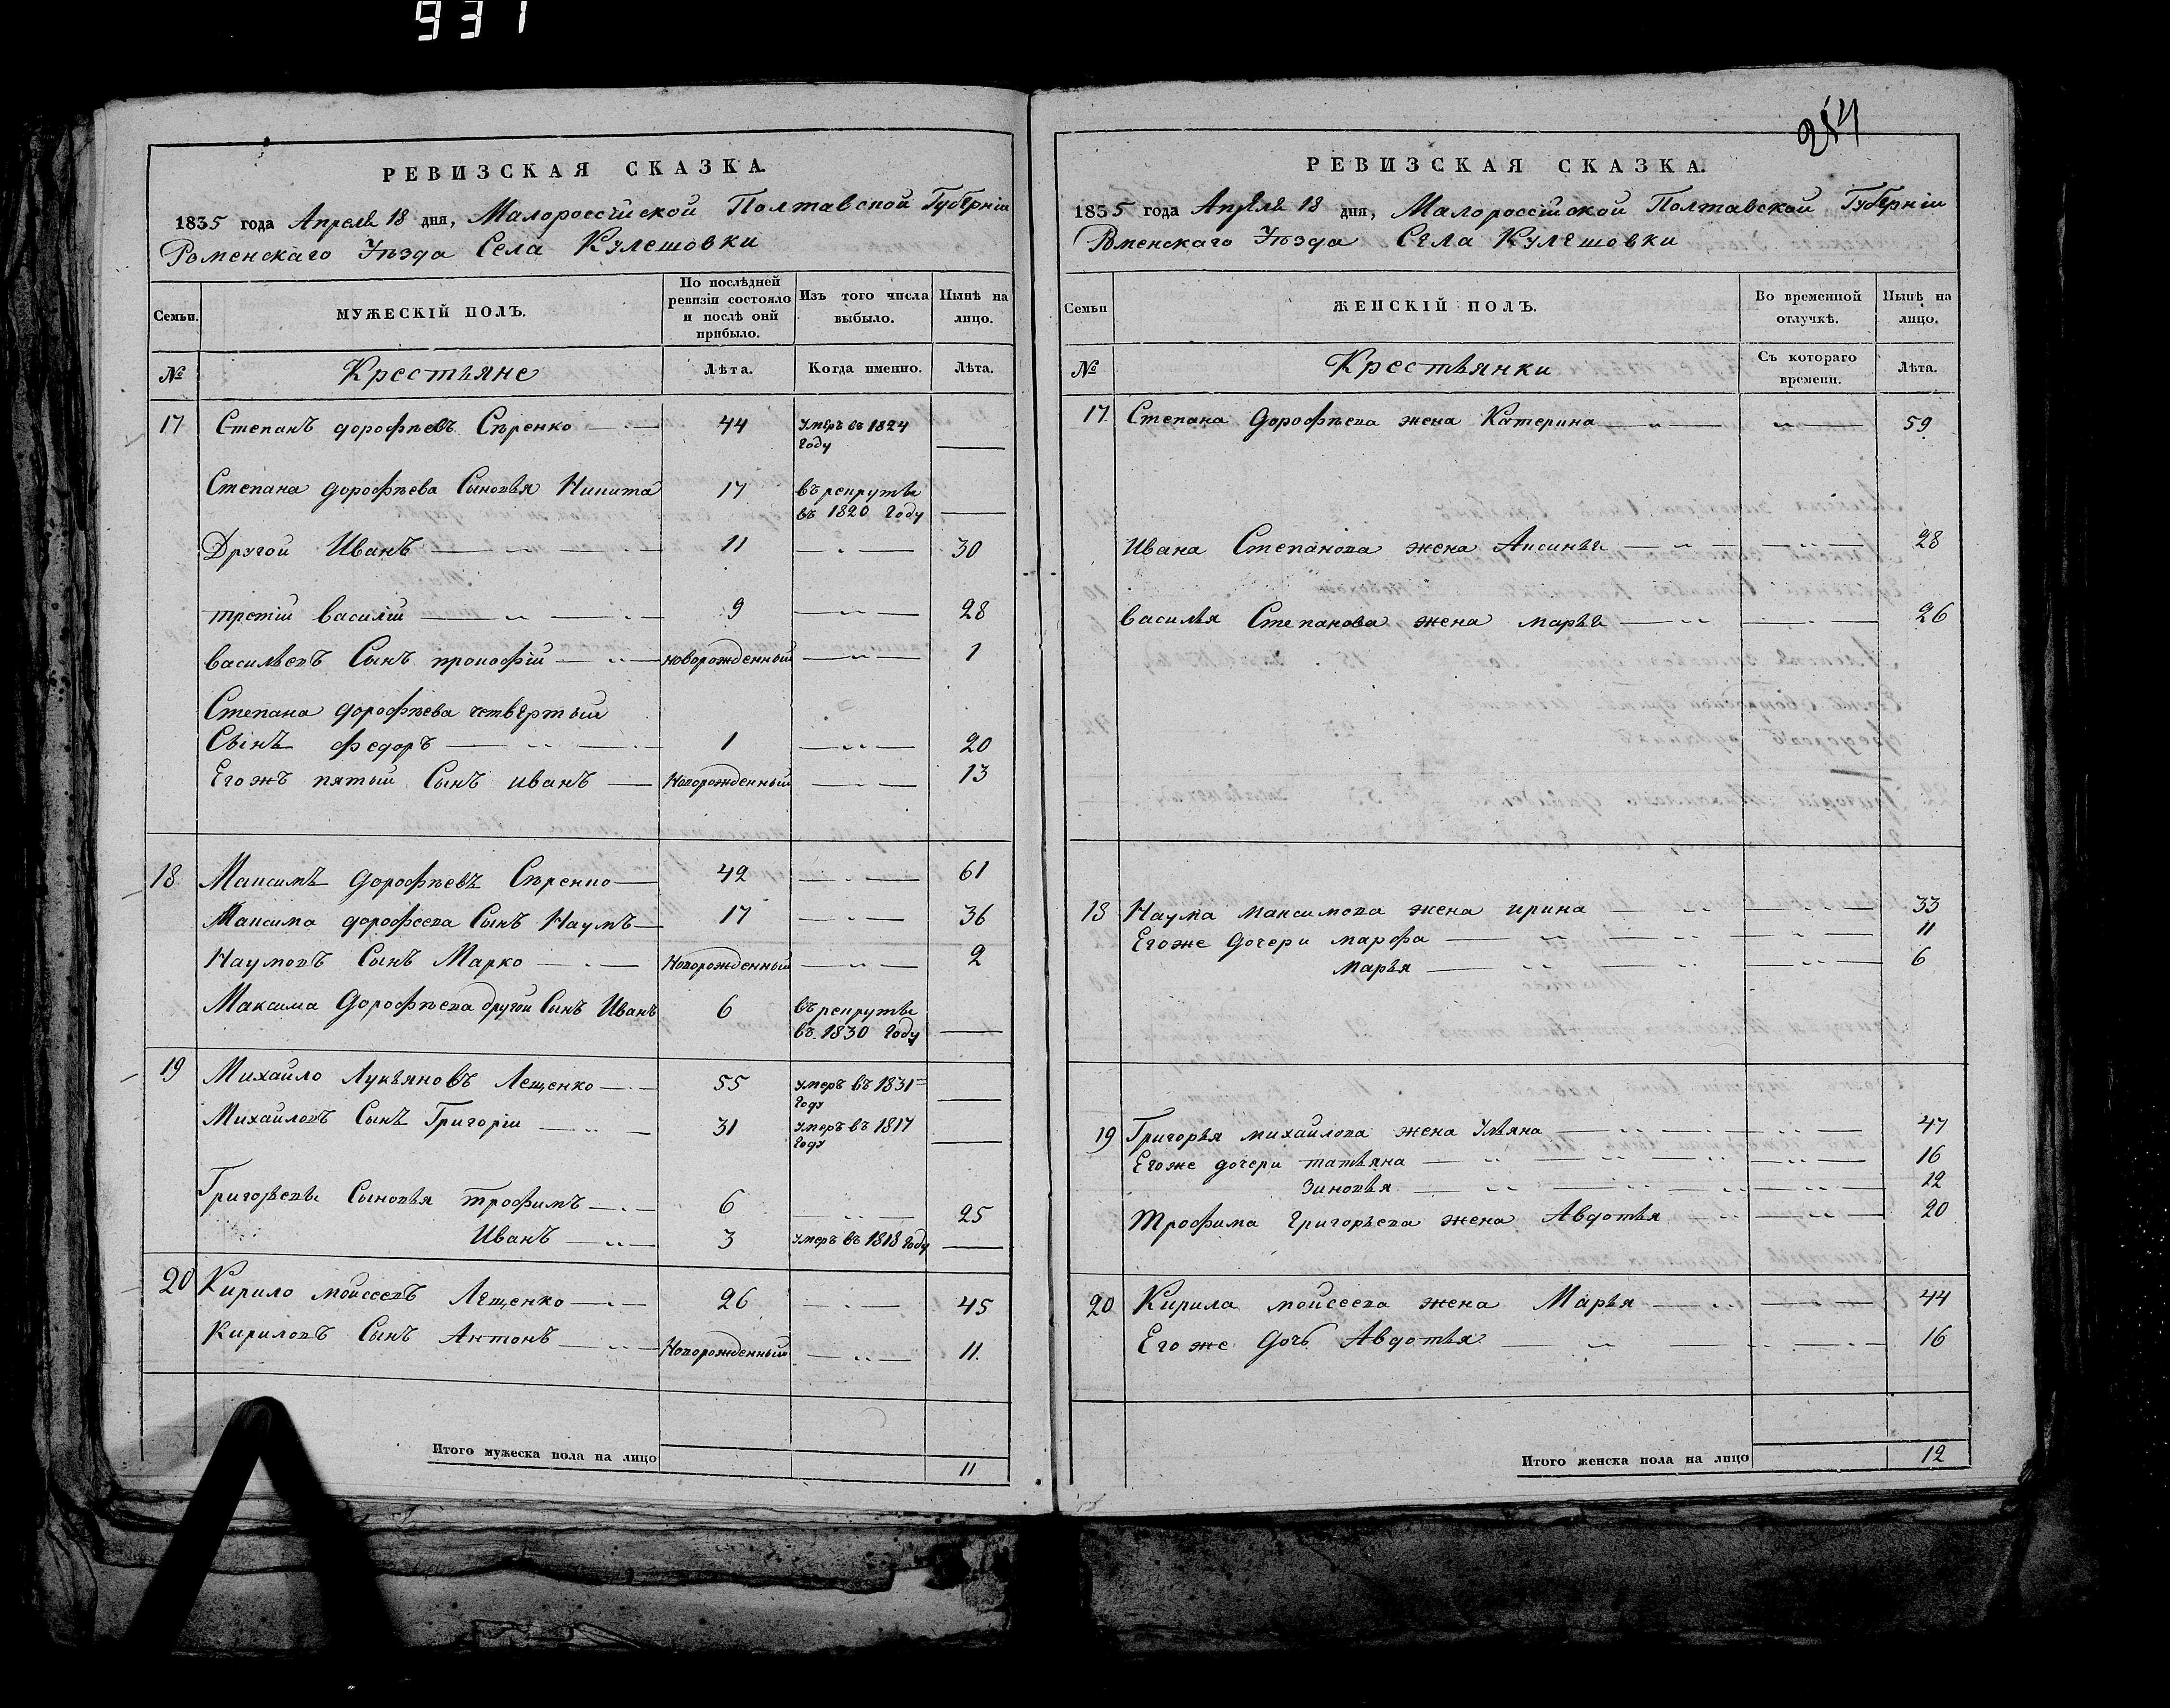 931
РЕВИЗСКАЯ СКАЗКА.
1835 года Апреля 18 дня, Малороссійской Полтавской Губерніи
Роменскаго Уѣзда Села Кулешовки
Семьи.
МУЖЕСКІЙ ПОЛЪ.
По послѣдней ревизіи состояло и послѣ оній прибыло.
Изъ того числа выбыло.
Нынѣ на лицо.
№
Крестьяне
Лѣта.
Когда именно.
Лѣта.
17 Степанъ дорофѣевъ Сѣренко 44 умеръ въ 1824 году
Степана дорофѣева Сыновья Никита 17 въ рекруты въ 1820 году
Другой Иванъ 11 30
третій василій 9 28
васильевъ Сынъ прокофій новорожденный 1
Степана дорофѣева четвертый
Сынъ федоръ 1 20
Егожъ пятый Сынъ иванъ Новорожденный 13
18 Максимъ дорофѣевъ Сѣренко 42 61
Максима дорофеева Сынъ Наумъ 17 36
Наумовъ Сынъ Марко Новорожденный 2
Максима Дорофѣева другой Сынъ Иванъ 6 въ рекруты въ 1830 году
19 Михайло Лукьяновъ Лещенко 55 умеръ въ 1831 году
Михайловъ Сынъ Григорій 31 умеръ въ 1817 году
Григорьевы Сыновья трофимъ 6 25
Иванъ 3 умеръ въ 1818 году
20 Кирило мойсеевъ Лещенко 26 45
Кириловъ Сынъ Антонъ Новорожденный 11
Итого мужеска пола на лицо 11
РЕВИЗСКАЯ СКАЗКА.
1835 года Апреля 18 дня, Малороссійской Полтавской Губерніи
Роменскаго Уѣзда Села Кулешовки
Семьи
ЖЕНСКІЙ ПОЛЪ.
Во временной отлучкѣ.
Нынѣ на лицо.
№
Крестьянки
Съ котораго времени.
Лѣта.
17 Степана Дорофѣева жена Катерина 59
Ивана Степанова жена Аксинья 28
василья Степанова жена марья 26
18 Наума максимова жена ирина 33
Егоже дочери марфа 11
марья 6
19 Григорья михайлова жена Ульяна 47
Егоже дочери татьяна 16
Зиновья 12
трофима григорьева жена Авдотья 20
20 Кирила мойсеева жена Марья 44
Его же дочь Авдотья 16
Итого женска пола на лицо 12